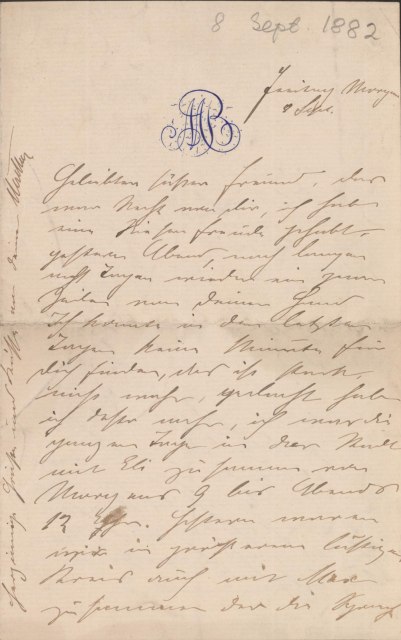 8 Sept. 1882
Freitag Morgen
8 Sept.
Geliebter süßer Freund, das
war Recht von dir, ich hab
eine Riesen freude gehabt,
gestern Abend, nach langen
Tagen wieder ein paar
Zeilen von deiner Hand
Ich konnte in den letzten
Tagen keine Minute für
dich finden, das ist stark,
nicht wahr, gedacht habe
ich desto mehr, ich war die
ganzen Tage in der Stadt
mit Eli zusammen von
Morgens 9 bis Abends
12 Uhr. Gestern waren
wir in größerem lustigen
Kreis auch mit Max
zusammen der die
Herzinnige Grüße und Küsse an deine Mutter